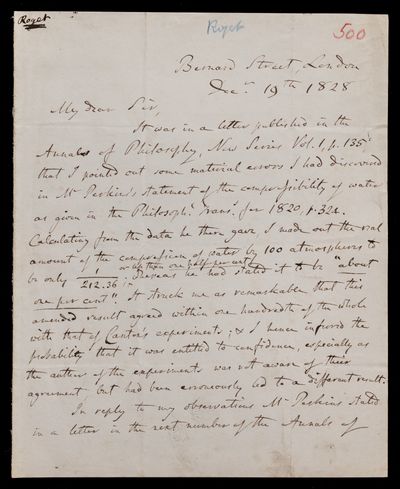 Roget
Roget
500
Bernard Street, London
Decr. 19th 1828
My dear Sir,
It was in a letter published in the
Annals of Philosophy, New Series Vol. 1, p. 135
that I pointed out some material errors I had discovered
in Mr Perkins's statement of the compressibility of water
as given in the Philosophl. Transs. for 1820, p. 324.
Calculating from the data he there gave, I made out the real
amount of the compression of water by 100 atmospheres to
or less than one half per cent
be only 1/212.36, whereas he had stated it to be "about
one per cent". It struck me as remarkable that this
amended result agreed within one hundredth of the whole
with that of Canton's experiments; & I hence inferred the
probability that it was entitled to confidence, especially as
the author of the experiments was not aware of their
agreement, but had been erroneously led to a different result.
In reply to my observations Mr Perkins stated
in a letter in the next number of the Annals of